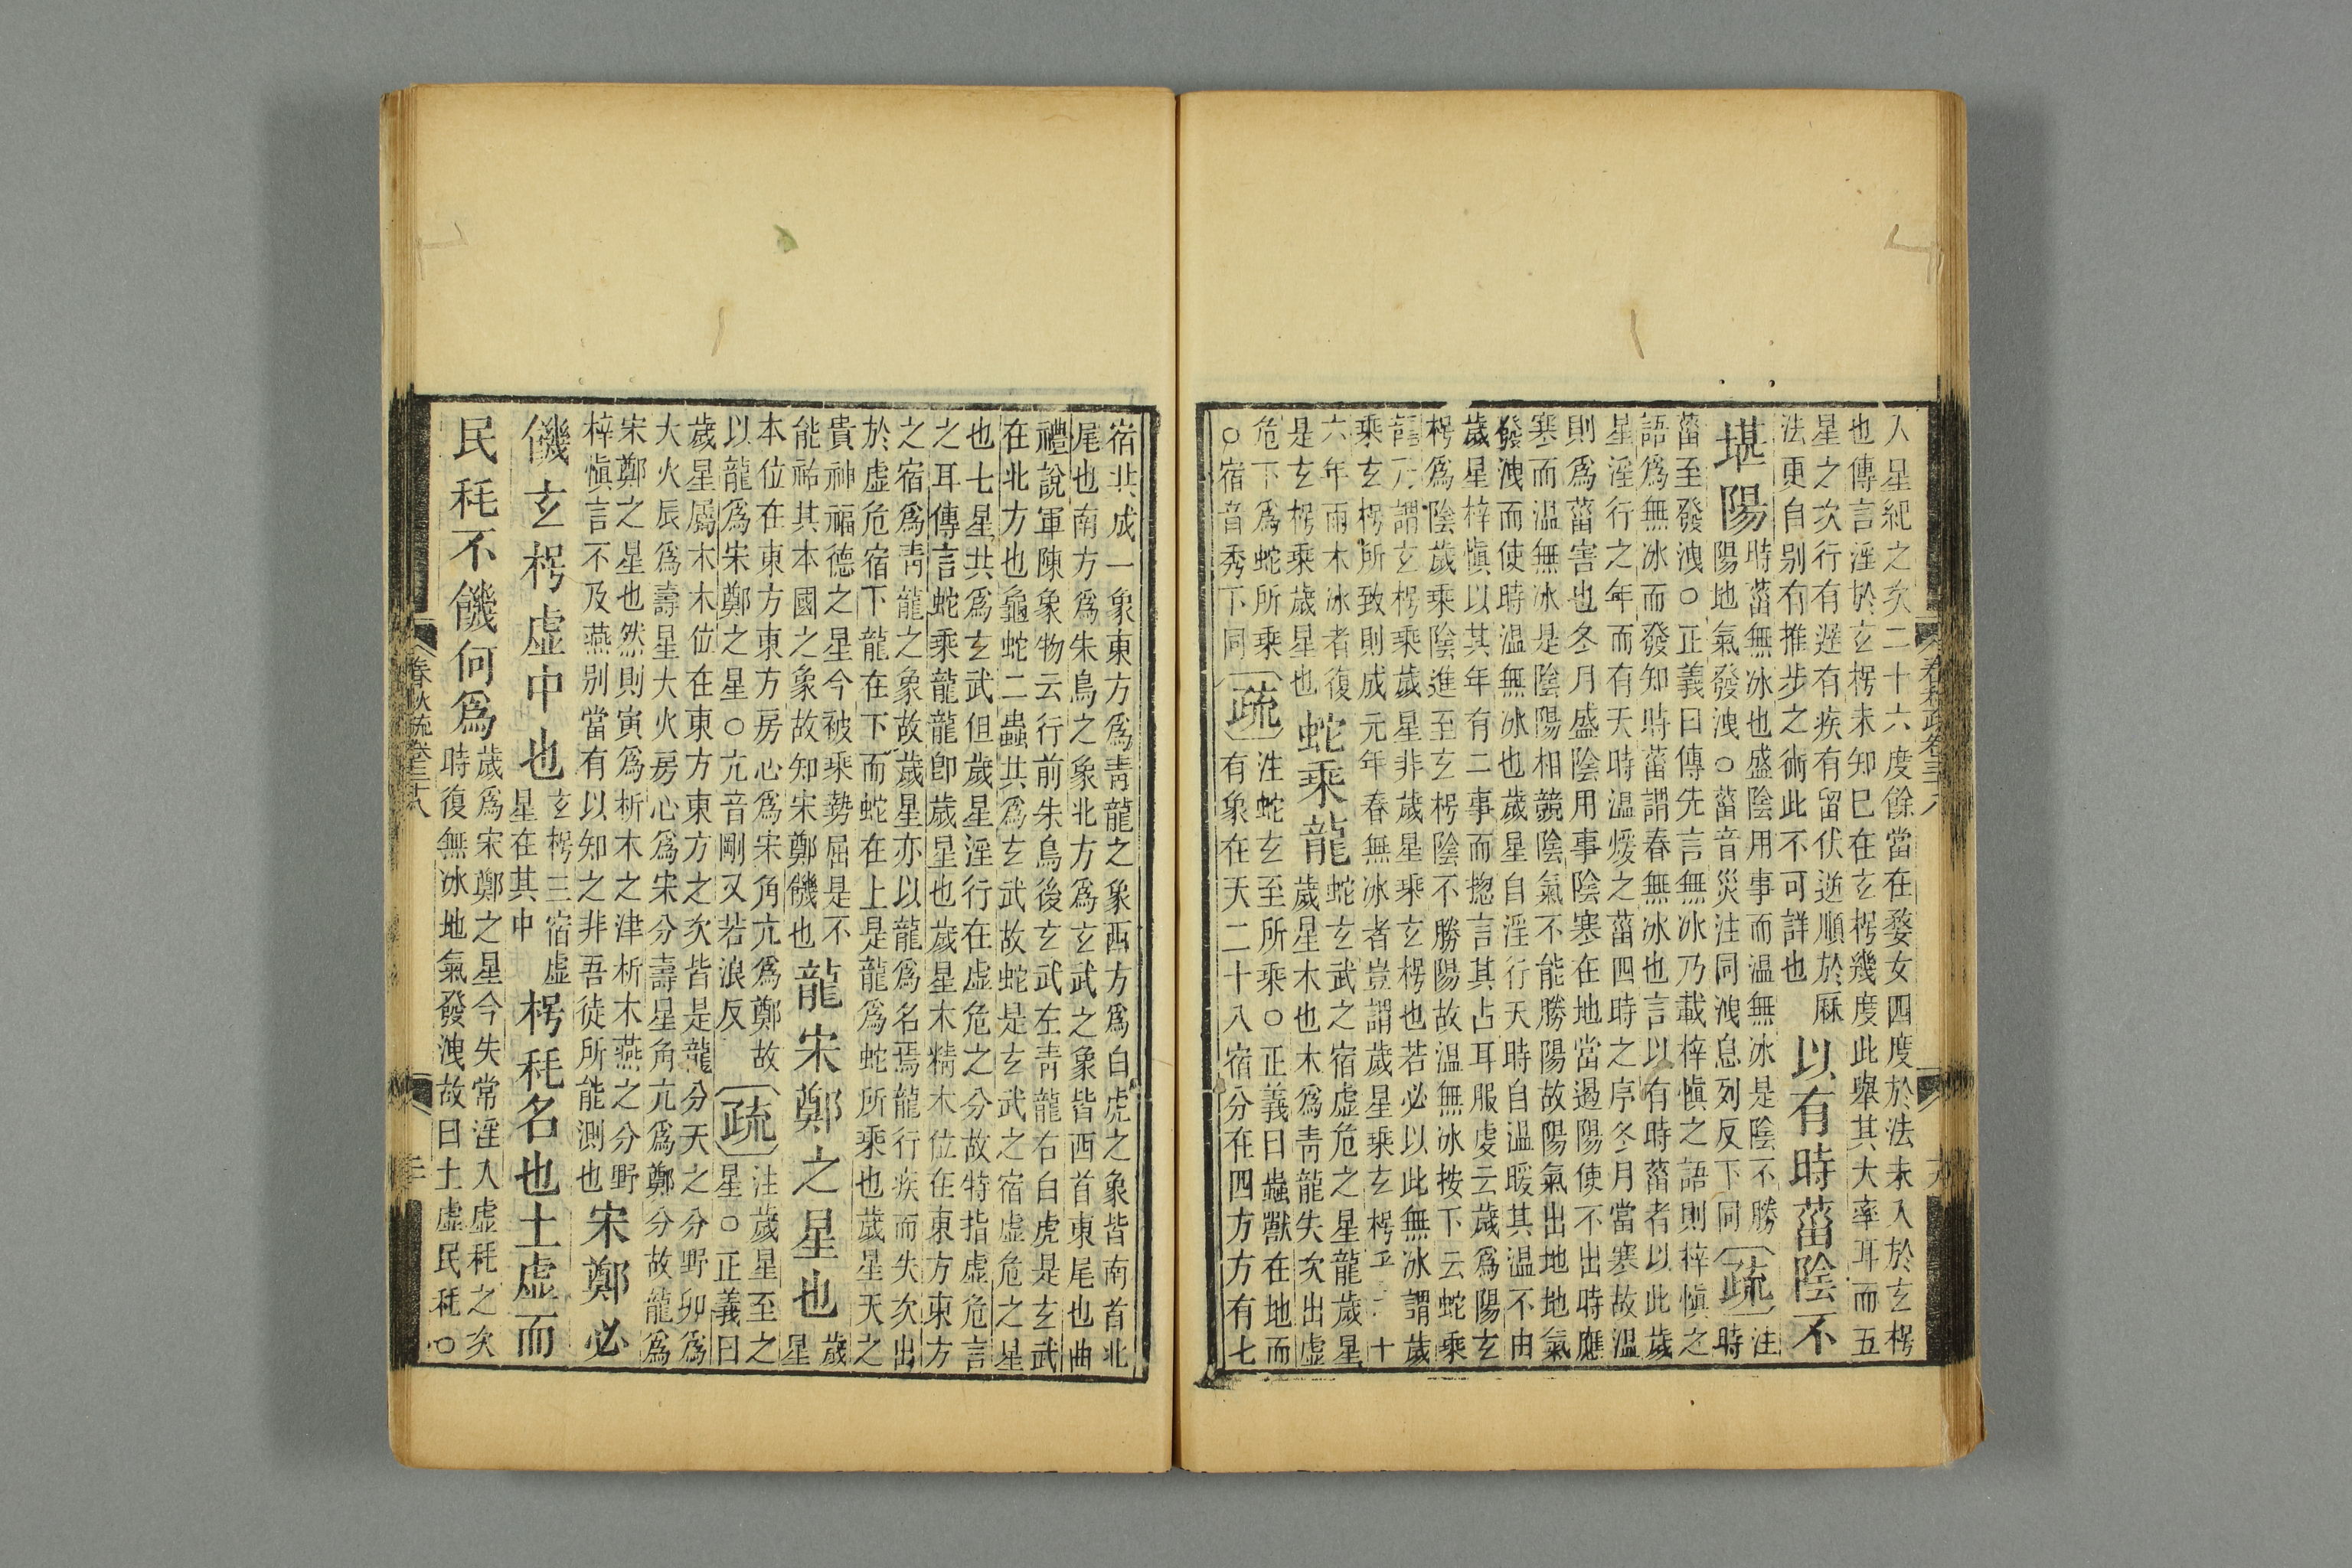 入星紀之次二十六度餘當在婺女四度於法未入於玄枵
也傳言淫於玄枵未知巳在玄枵幾度此舉其大率耳而五
星之次行有遲有疾有留伏逆順於厤
法更自别有推步之術此不可詳也
以有時菑陰不
堪陽
時菑無冰也盛陰用事而温無冰是陰不勝
陽地氣發洩○菑音災注同洩息列反下同
疏
注
時
菑至發洩○正義曰傳先言無冰乃載梓慎之語則梓慎之
語爲無冰而發知時菑謂春無冰也言以有時菑者以此歲
星淫行之年而有天時温煖之菑四時之序冬月當寒故温
則爲菑害也冬月盛陰用事陰寒在地當遏陽使不出時應
寒而温無冰是陰陽相競陰氣不能勝陽故陽氣出地地氣
發洩而使時温無冰也歲星自淫行天時自温暖其温不由
歲星梓慎以其年有二事而揔言其占耳服虔云歲爲陽玄
枵爲陰歲乘陰進至玄枵陰不勝陽故温無冰按下云蛇乘
龍乃謂玄枵乘歲星非歲星乘玄枵也若必以此無冰謂歲
乘玄枵所致則成元年春無冰者豈謂歲星乘玄枵乎十
六年雨木冰者復
是玄枵乘歲星也
蛇乘龍
蛇玄武之宿虚危之星龍歲星
歲星木也木爲青龍失次出虚
危下爲蛇所乘
○宿音秀下同
疏
注蛇玄至所乘○正義曰蟲獸在地而
有象在天二十八宿分在四方方有七
春秋疏卷三十八
宿共成一象東方爲青龍之象西方爲白虎之象皆南首北
尾也南方爲朱鳥之象北方爲玄武之象皆西首東尾也曲
禮說軍陳象物云行前朱鳥後玄武左青龍右白虎是玄武
在北方也龜蛇二蟲共爲玄武故蛇是玄武之宿虚危之星
也七星共爲玄武但歲星淫行在虚危之分故特指虚危言
之耳傳言蛇乘龍龍卽歲星也歲星木精木位在東方東方
之宿爲青龍之象故歲星亦以龍爲名焉龍行疾而失次出
於虚危宿下龍在下而蛇在上是龍爲蛇所乘也歲星天之
貴神福德之星今被乘勢屈是不
能祐其本國之象故知宋鄭饑也
龍宋鄭之星也
歲
星
本位在東方東方房心爲宋角亢爲鄭故
以龍爲宋鄭之星○亢音剛又苦浪反
疏
注歲星至之
星○正義曰
歲星屬木木位在東方東方之次皆是龍分天之分野卯爲
大火辰爲壽星大火房心爲宋分壽星角亢爲鄭分故龍爲
宋鄭之星也然則寅爲析木之津析木燕之分野
梓慎言不及燕别當有以知之非吾徒所能測也
宋鄭必
饑玄枵虚中也
玄枵三宿虚
星在其中
枵秏名也土虚而
民秏不饑何爲
歲爲宋鄭之星今失常淫入虚秏之次
時復無冰地氣發洩故曰土虚民秏○
春秋疏卷三十八